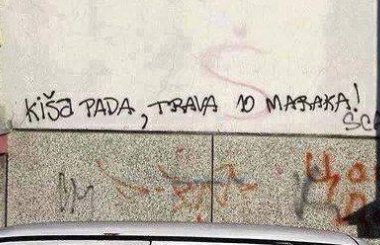 KIŠA PADA, TRAVA 10 MARAKA!